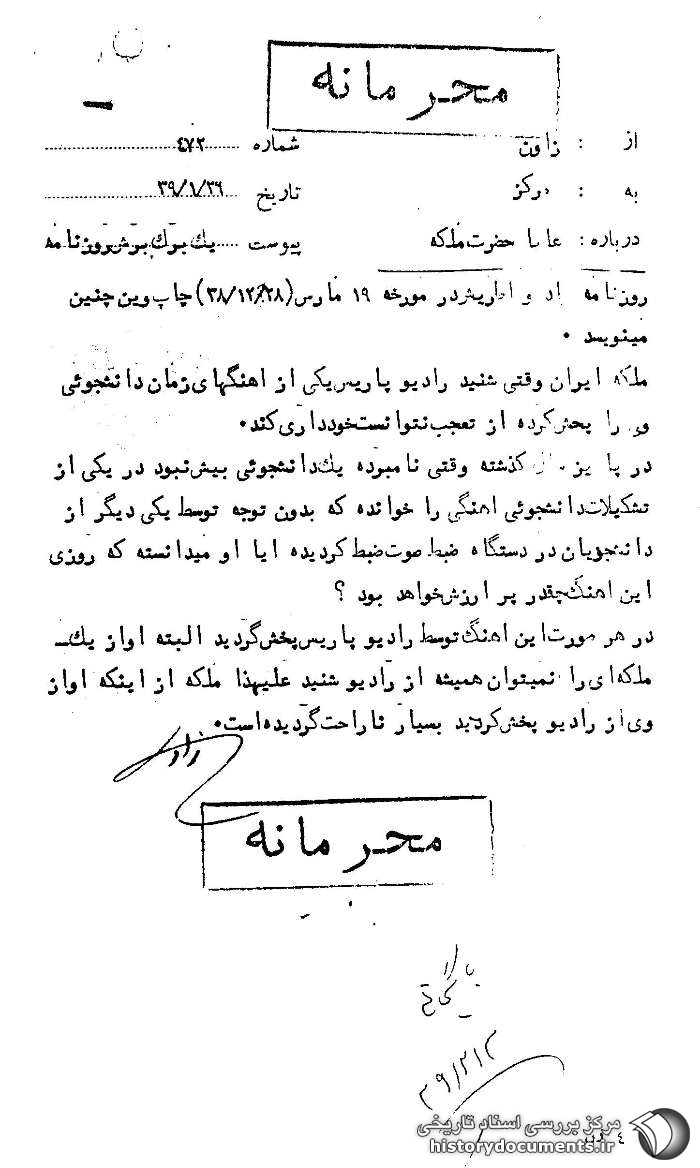 محرمانه
از : زاون
شماره ۴۷۲
به : مرکز
تاریخ ۳۹/۱/۲۶
درباره : علیا حضرت ملکه
پیوست یك برك برش روزنامه
روزنامه اد و اطریش در مورخه ۱۹ مارس (۳۸/۱۲/۲۸) چاپ وین چنین
مینویسد ۰
ملکه ایران وقتی شنید رادیو پاریس یکی از اهنگهای زمان دانشجوئی
وی را پخش کرده از تعجب نتوانست خودداری کند۰
در پاییز سال گذشته وقتی نامبرده یك دانشجوئی بیش نبود در یکی از
تشکیلات دانشجوئی اهنگی را خوانده که بدون توجه توسط یکی دیگر از
دانشجویان در دستگاه ضبط صوت ضبط گردیده ایا او میدانسته که روزی
این اهنگ چقدر پر ارزش خواهد بود ؟
در هر صورت این اهنگ توسط رادیو پاریس پخش گردید البته اواز یك
ملکه ای را نمیتوان همیشه از رادیو شنید علیهذا ملکه از اینکه اواز
وی از رادیو پخش گردید بسیار ناراحت گردیده است۰
محرمانه
بایگانی
۳۹/۲/۲
مرکز بررسی اسناد تاریخی
historydocuments.ir